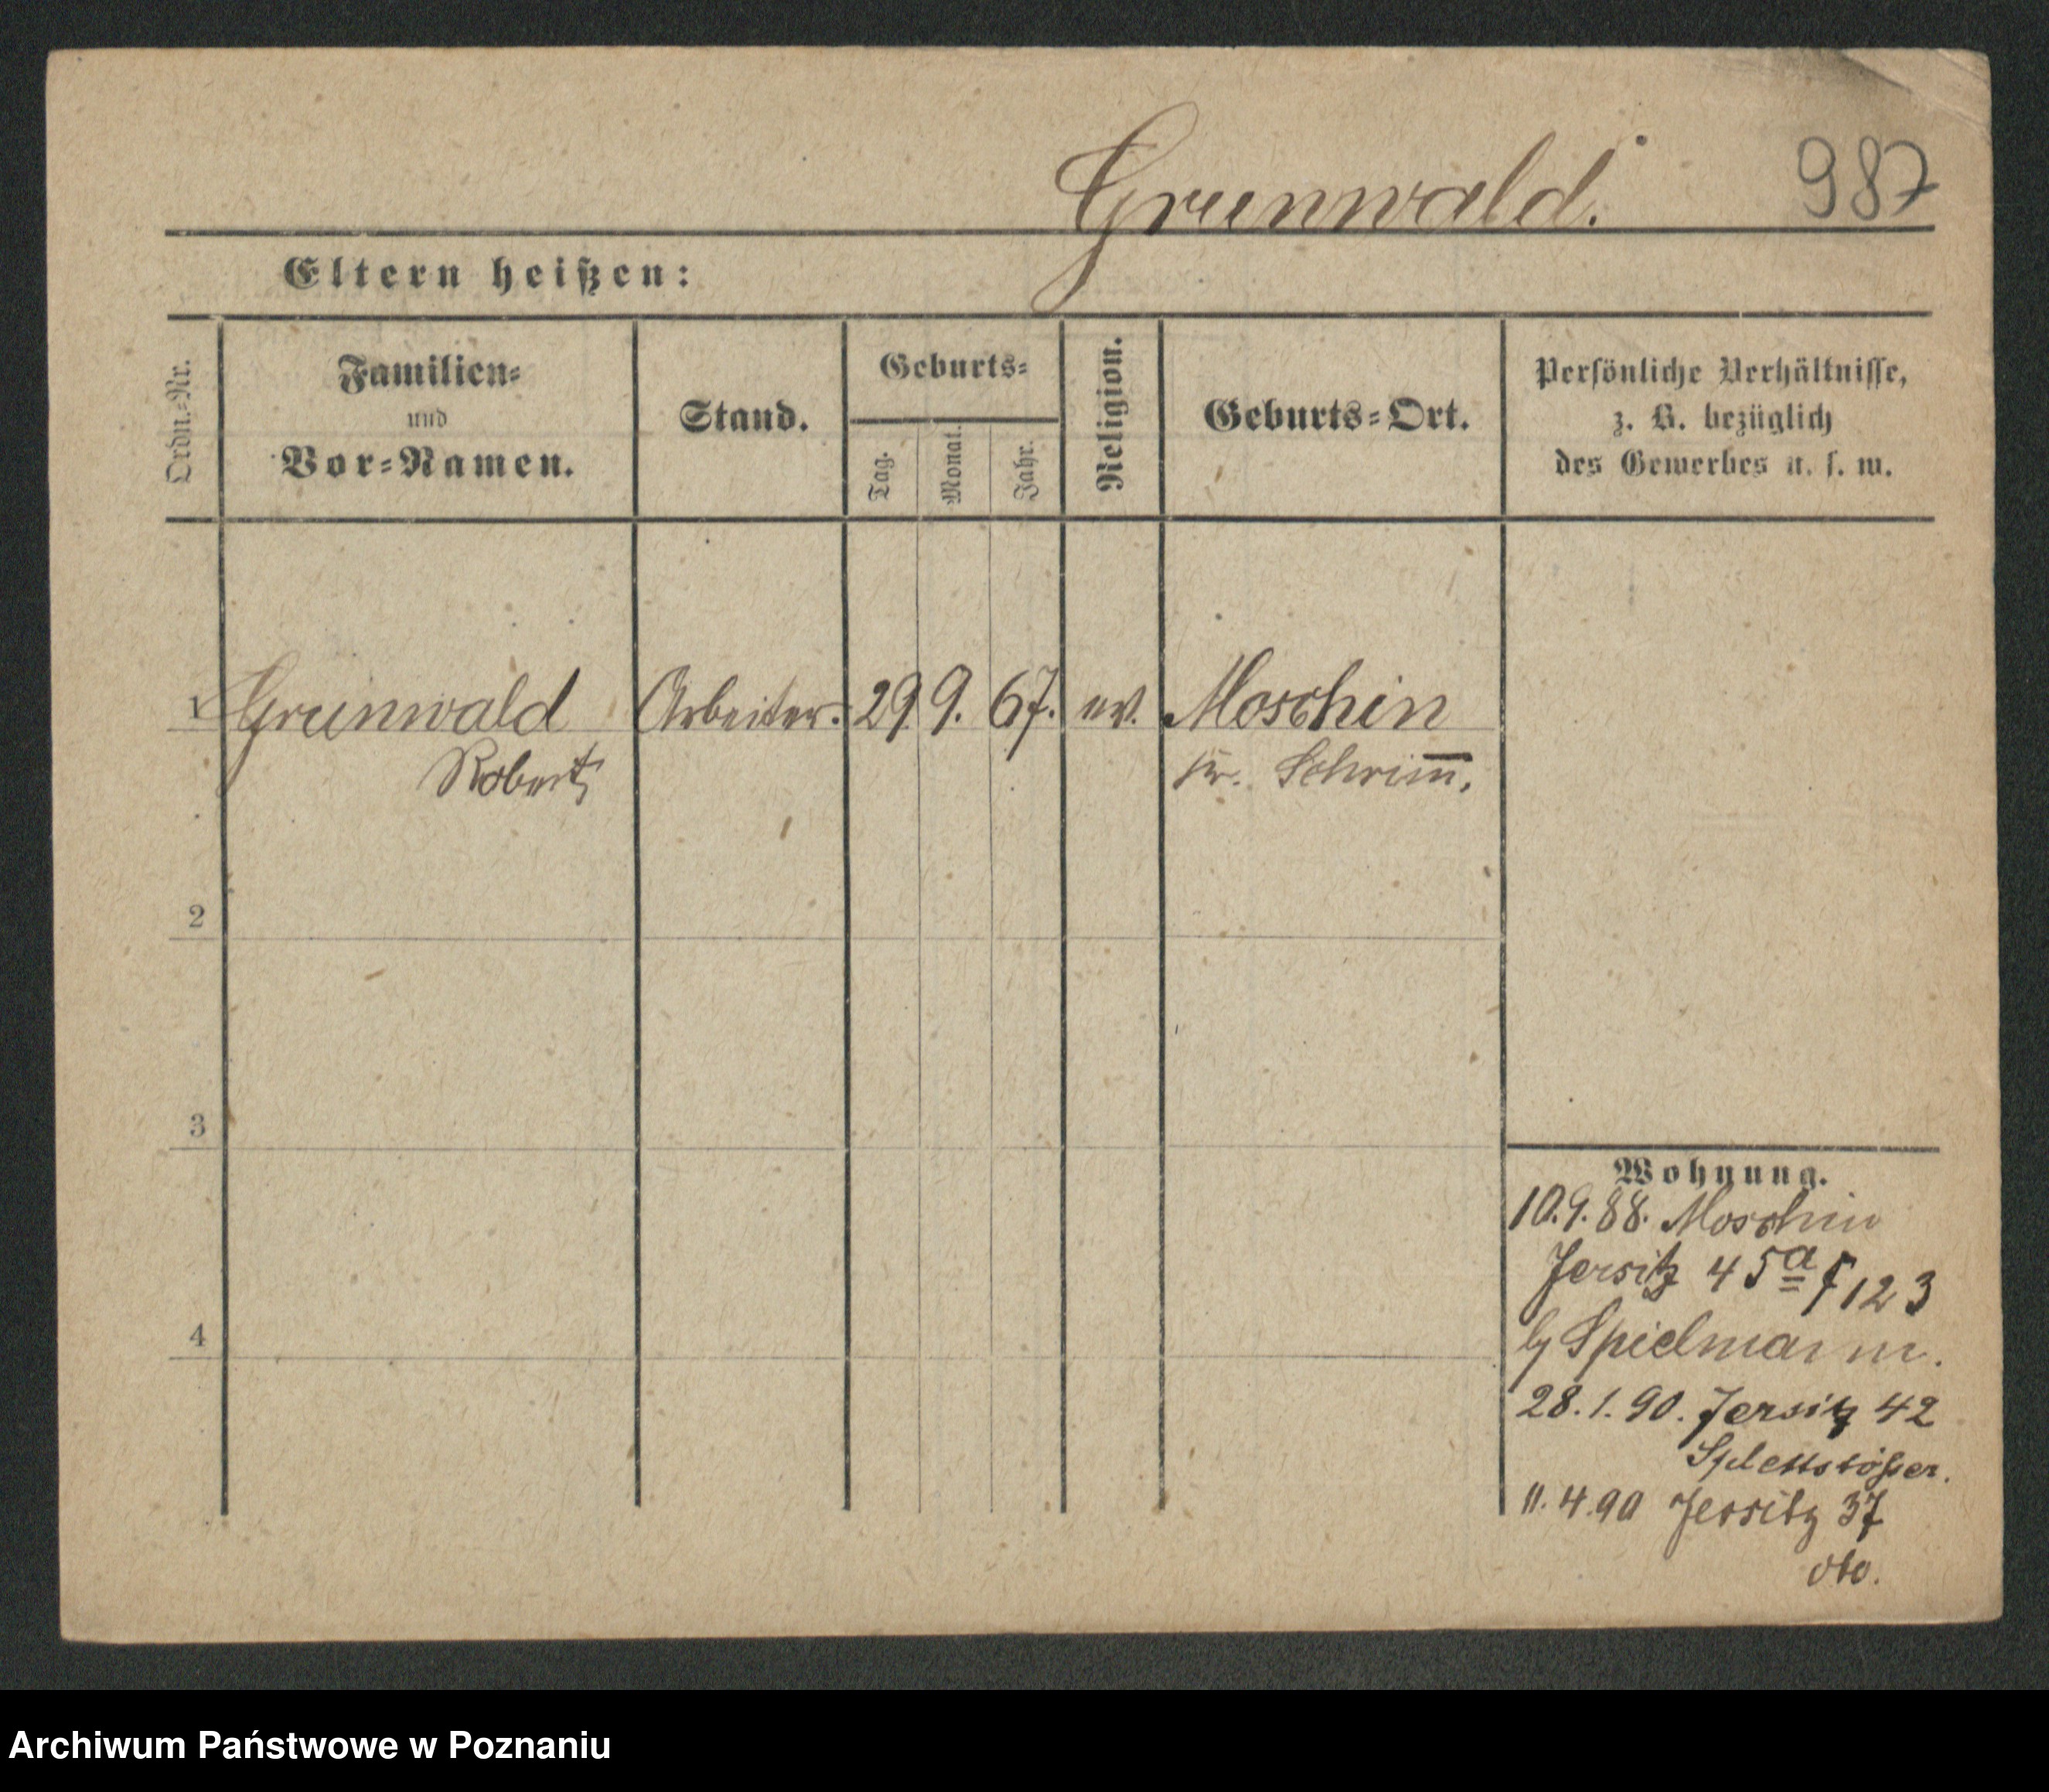 Grunwald.
987
Eltern heißen:
Ordn.-Nr.
Familien-
und
Vor-Namen.
Stand.
Geburts-
Tag.
Monat.
Jahr.
Religion.
Geburts-Ort.
Persönliche Verhältnisse,
z. B. bezüglich
des Gewerbes u. s. w.
1 Grunwald Arbeiter. 29 9. 67. ev. Moschin
Robert Kr. Schrim̅.
2
3
4
Wohnung.
10.9.88. Moschin
Jersitz 45a 123
Spielmann.
28.1.90. Jersitz 42
Splettstößer.
11.4.90 Jersitz 37
Archiwum Państwowe w Poznaniu